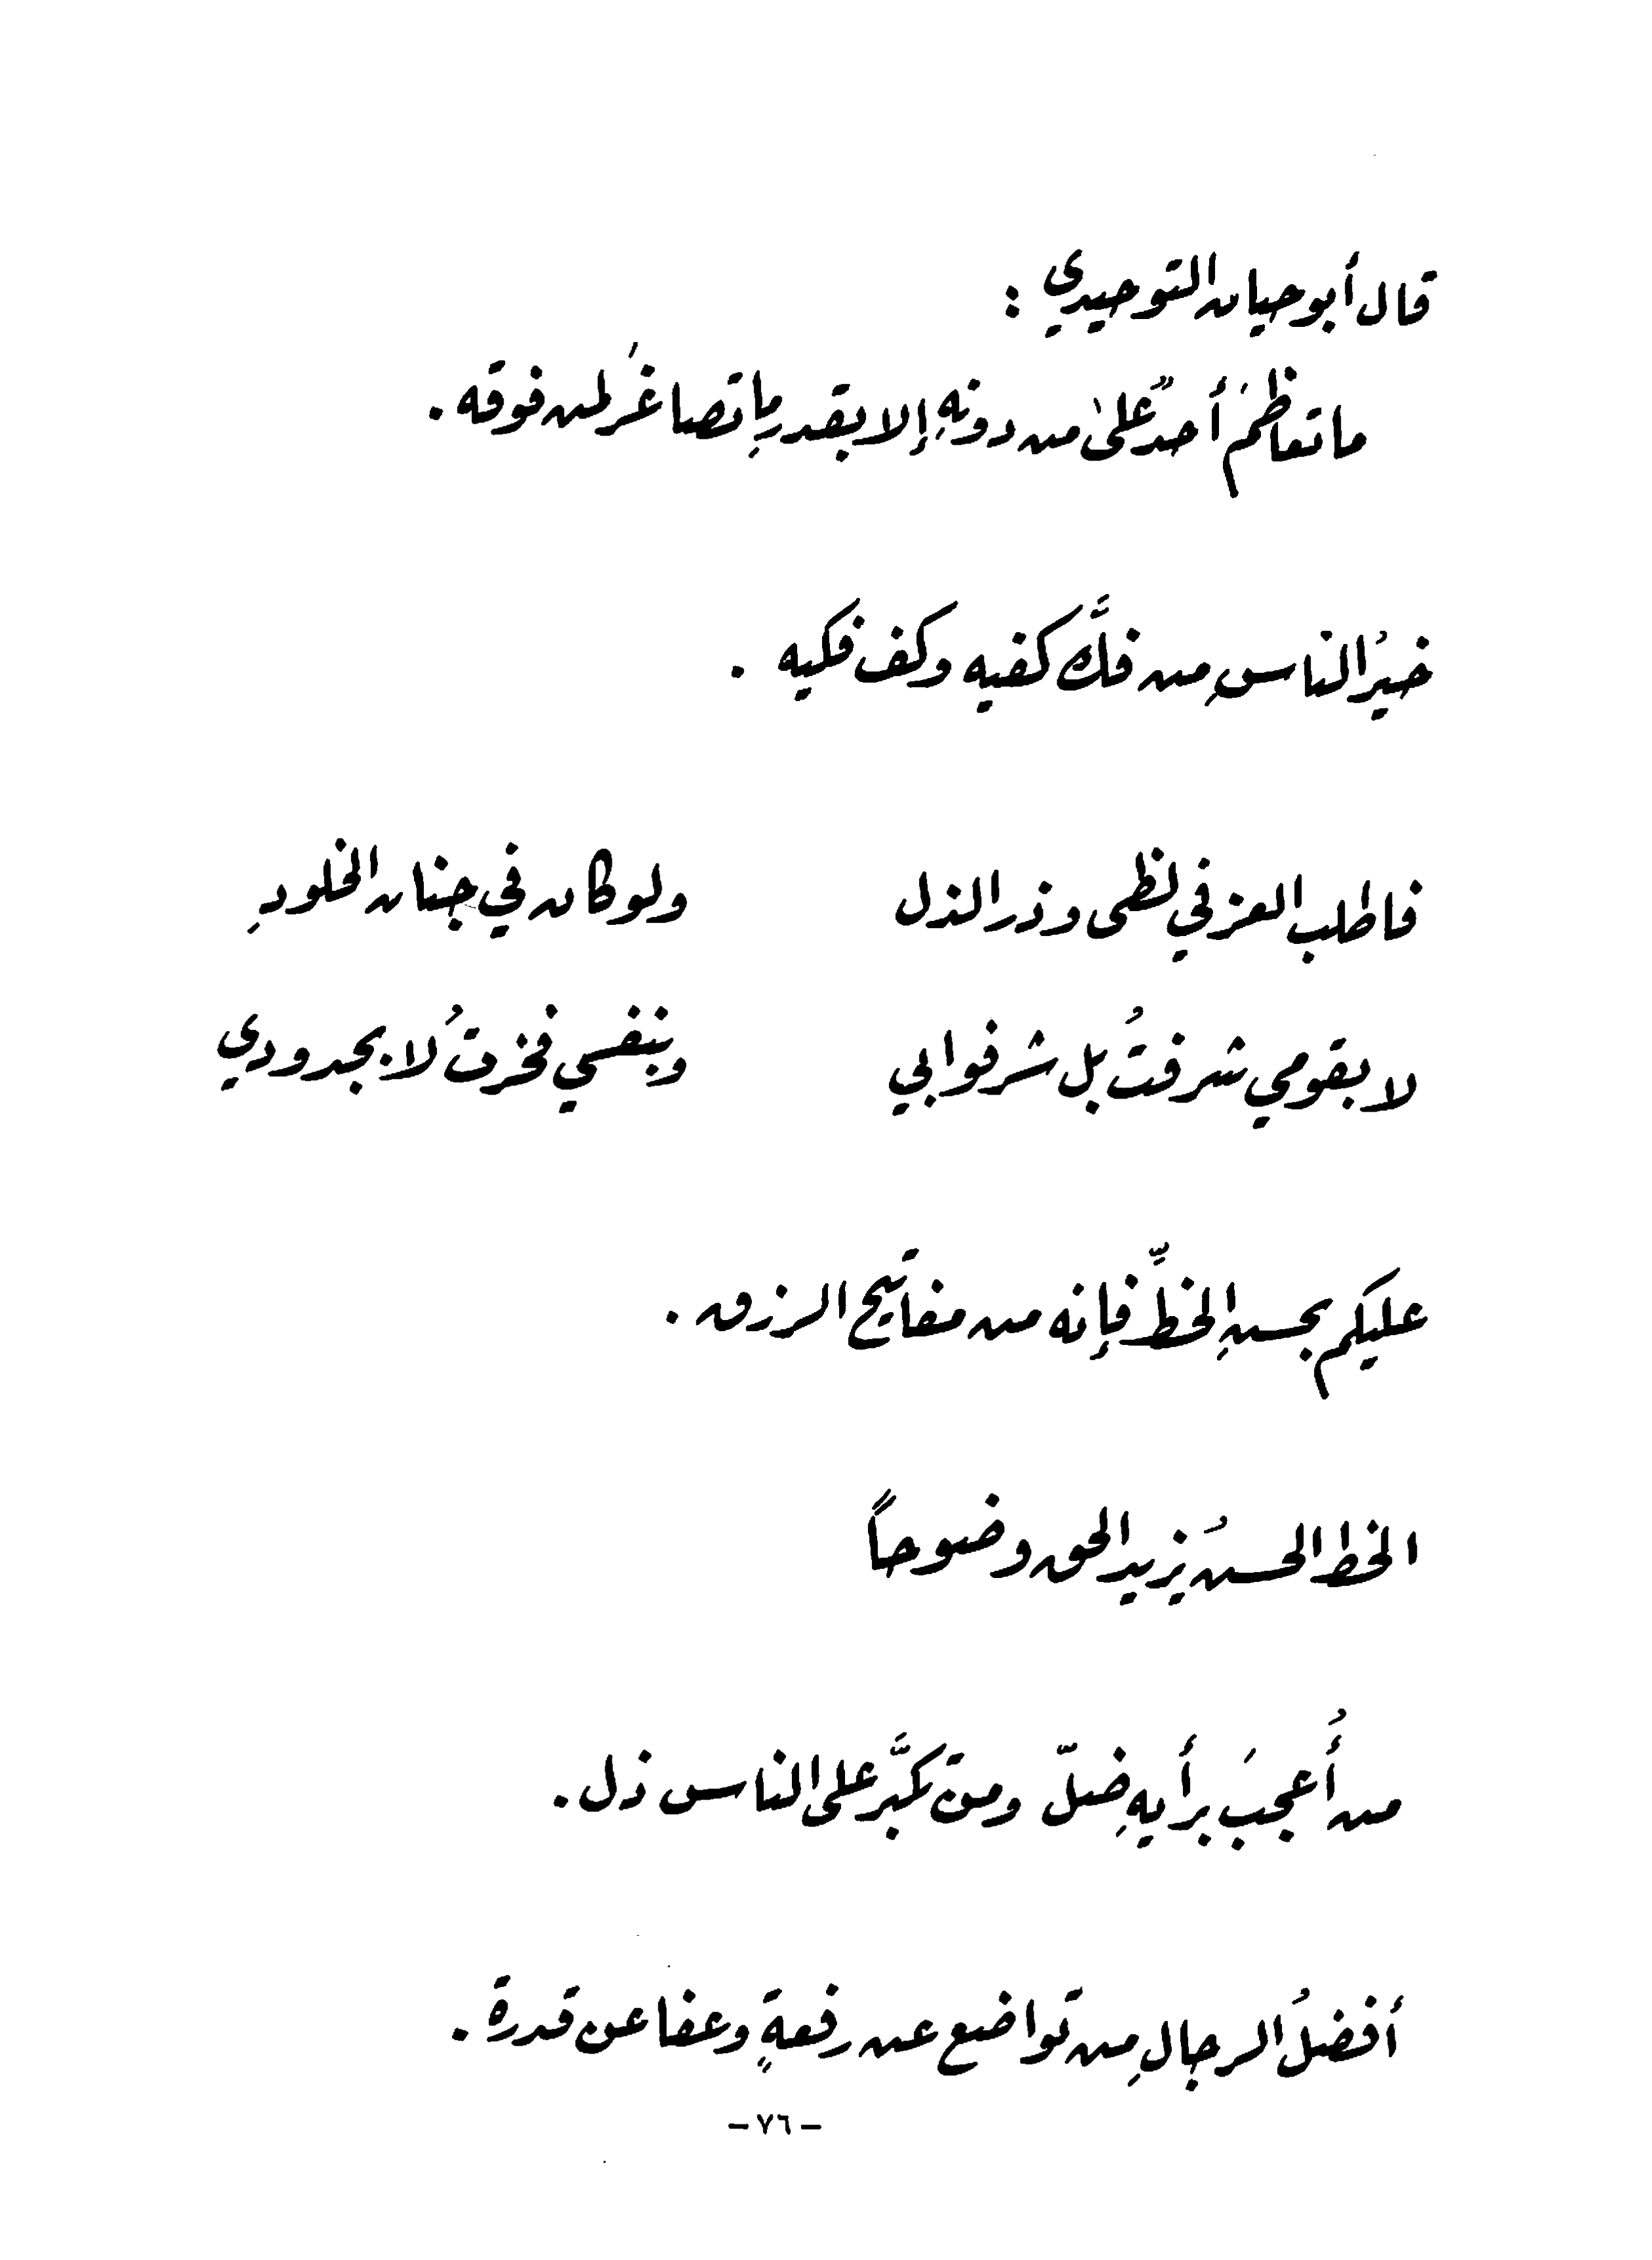 قال أبو حيان التوحيدي :
ما تعاظمَ أحدٌ على من دونهِ إلا بقدرِ ما تصاغَرُ لمن فوقه .
خيرُ الناسِ من فكَّ كفيه وكف فكيه .
فاطلب العز في لظى وذر الذل ولو كان في جنان الخلودِ
لا بقومي شرفتُ بل شرفوا بي وبنفسي فخرتُ لا بجدودي
عليكم بحسنِ الخطِّ فإنه من مفاتيح الرزق .
الخط الحسنُ يزيد الحق وضوحاً
من أُعجبَ برأيهِ ضلّ ومن تكبَّر على الناس ذل .
أفضلُ الرجالِ من تواضع عن رفعةٍ وعفا عن قدرة .
- ٧٦ -